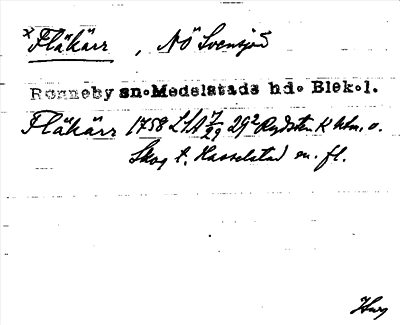 x Fläkärr, NÖ Svensjö
Ronneby sn. Medelstads hd. Blek. l.
Fläkärr 1758 LSA 7/29 29² Rydsten K Utm. o.
Skog t. Hasselstad m. fl.